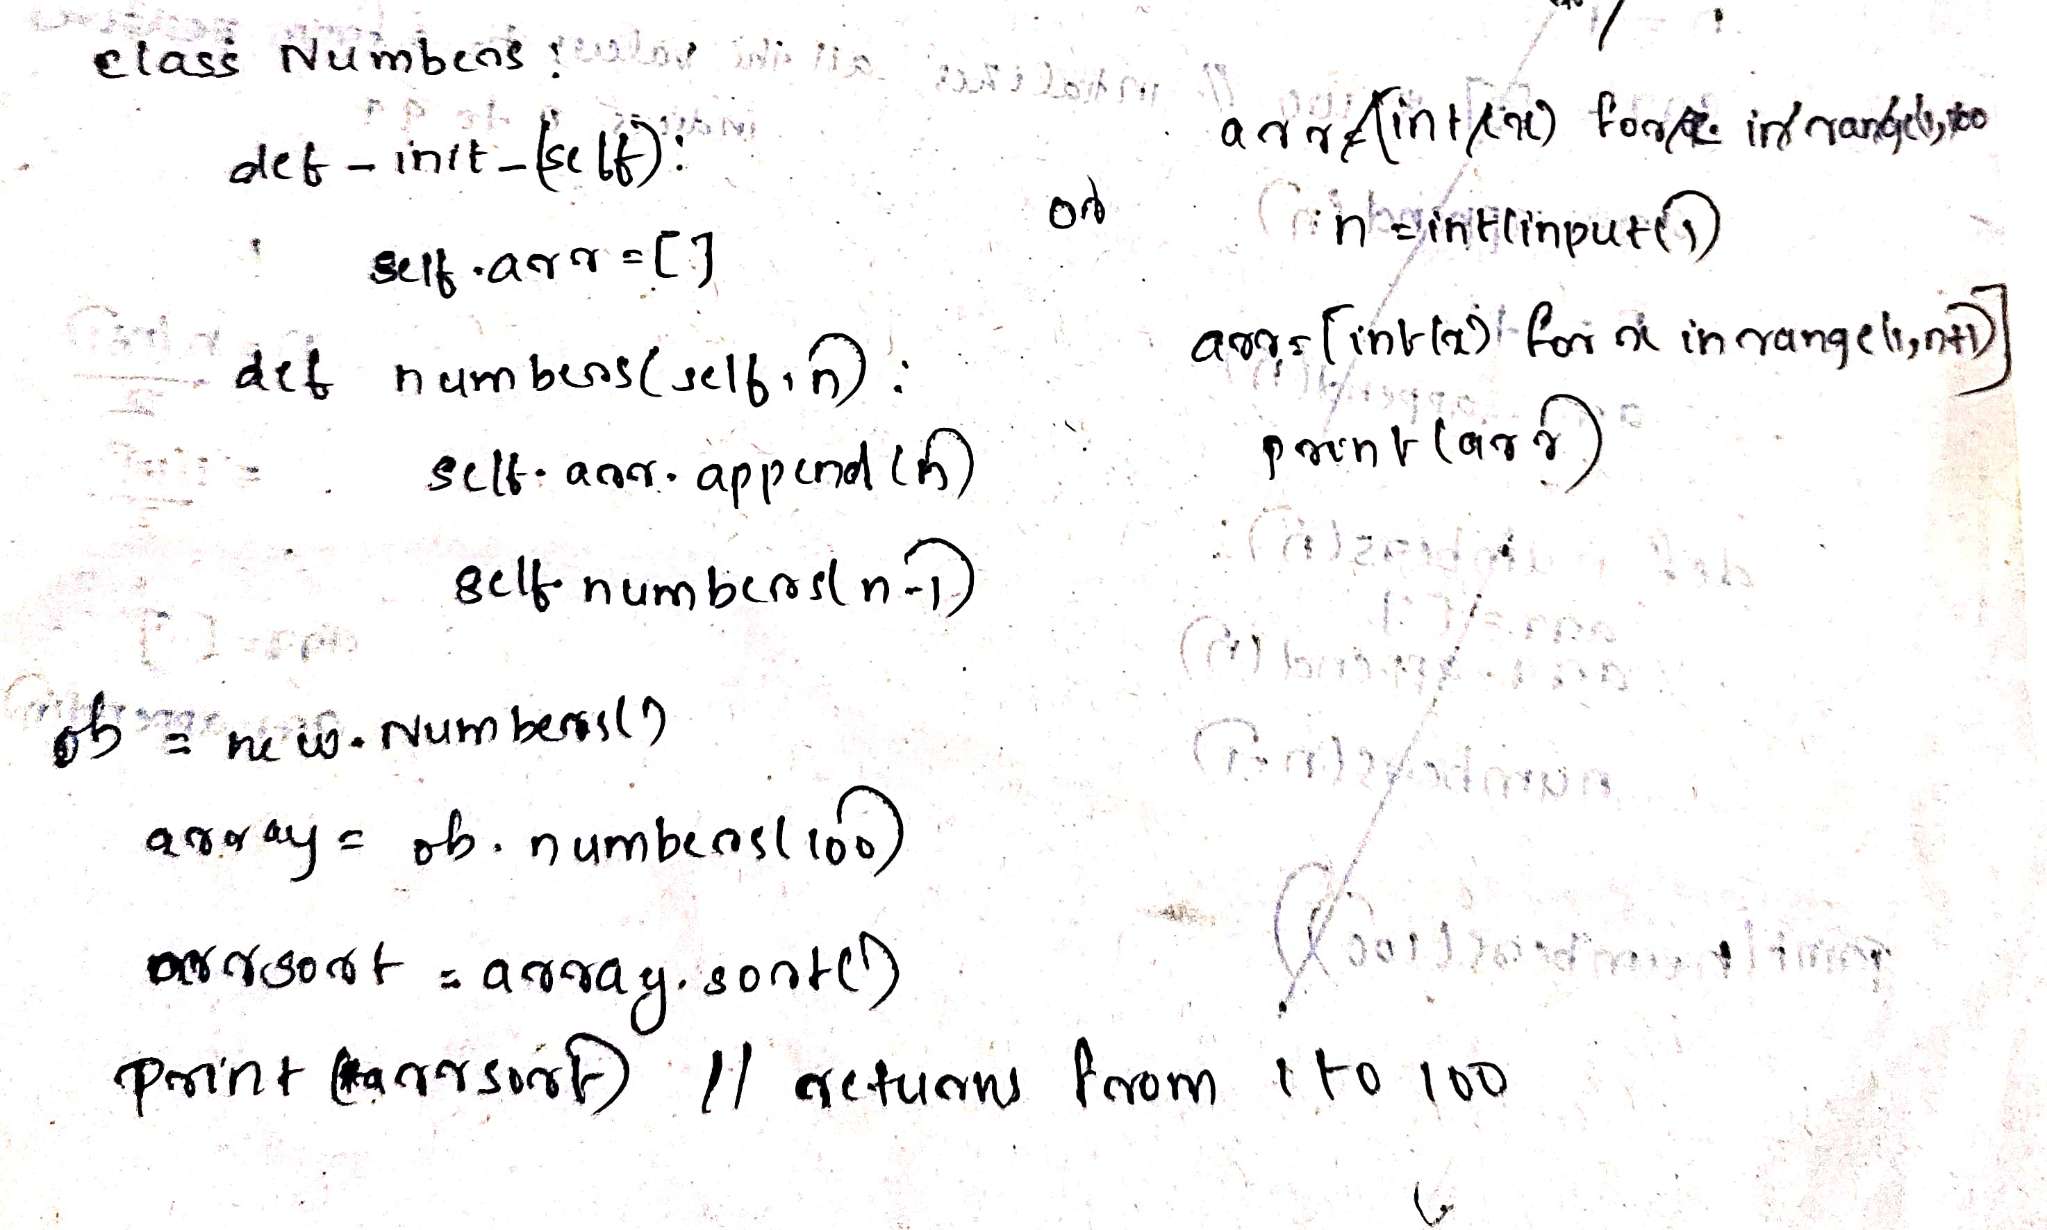 class Numbers:
def _init_(self):
self.arr = []
def numbers(self, n):
self.arr.append(n)
self.numbers(n-1)
ob = new.Numbers()
array = ob.numbers(100)
arrsort = array.sort()
print(*arrsort) // returns from 1 to 100
or
n = int(input())
arr = [int(x) for x in range(1, n+1)]
print(arr)